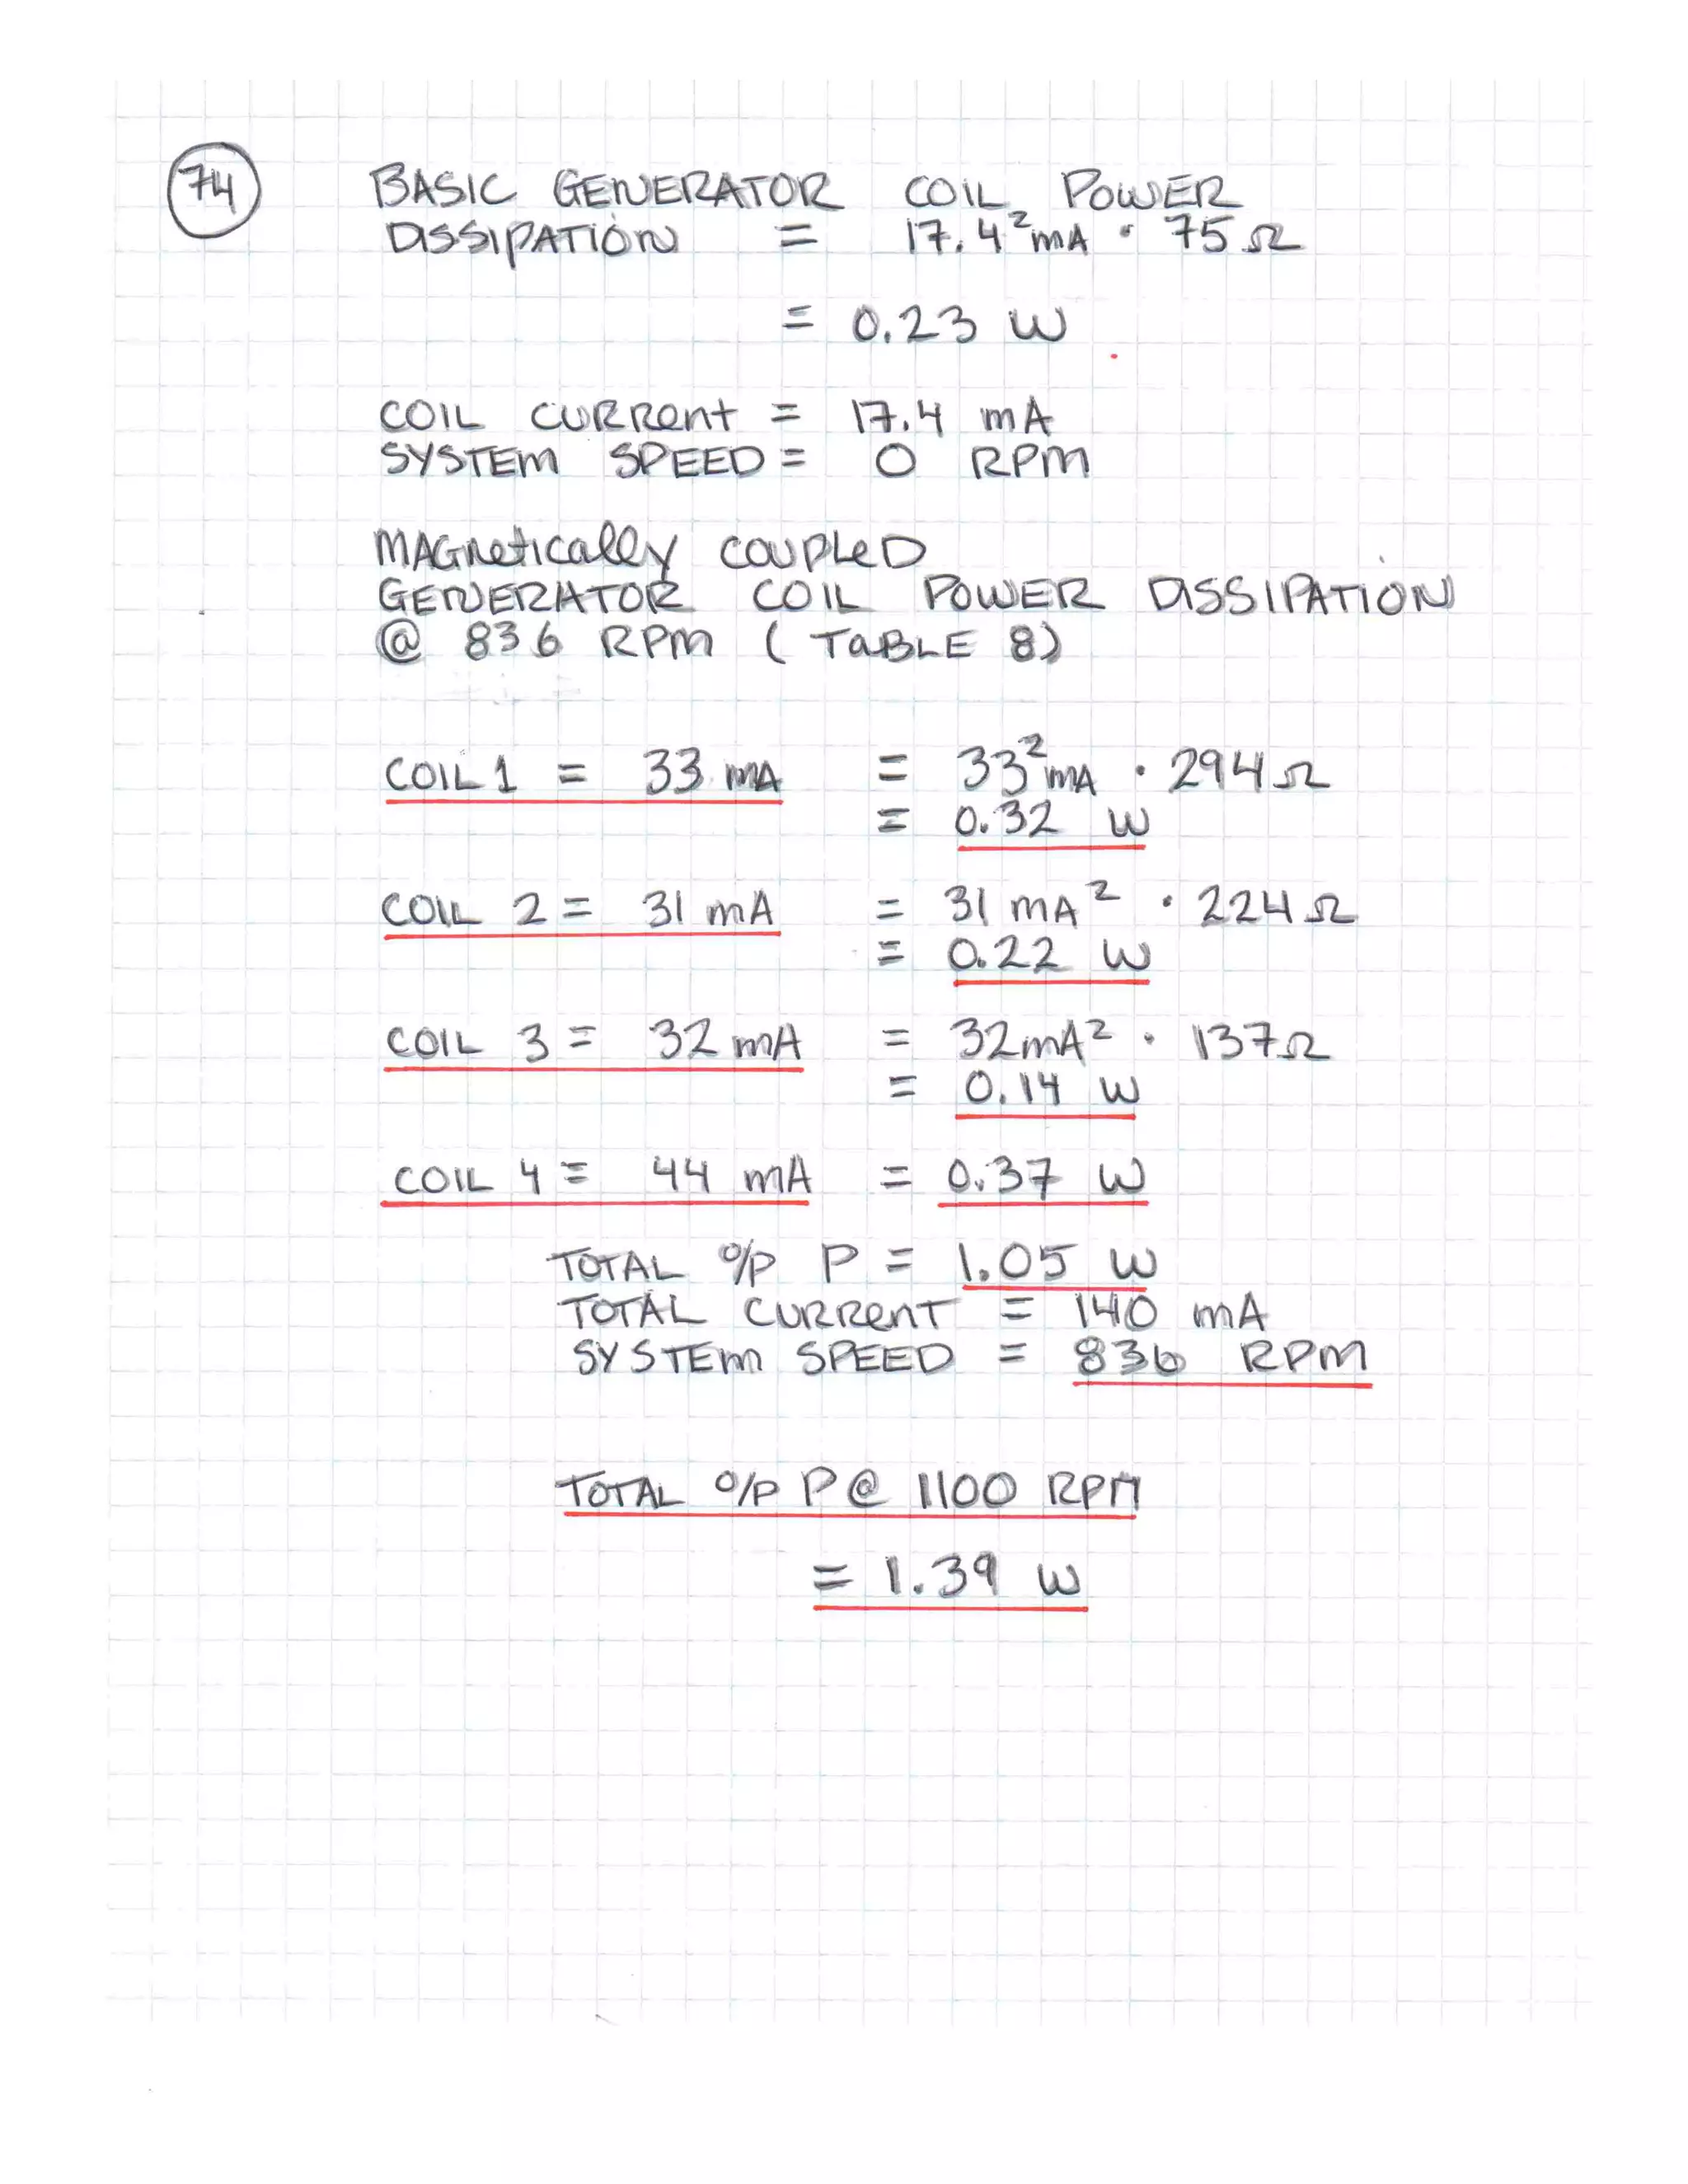 74
BASIC GENERATOR COIL POWER
DISSIPATION = 17.4²mA · 75Ω
= 0.23 W
COIL CURRENT = 17.4 mA
SYSTEM SPEED = 0 RPM
MAGNETICALLY COUPLED
GENERATOR COIL POWER DISSIPATION
@ 836 RPM (TABLE 8)
COIL 1 = 33 mA = 33²mA · 294Ω
= 0.32 W
COIL 2 = 31 mA = 31 mA² · 224Ω
= 0.22 W
COIL 3 = 32 mA = 32mA² · 137Ω
= 0.14 W
COIL 4 = 44 mA = 0.37 W
TOTAL O/P P = 1.05 W
TOTAL CURRENT = 140 mA
SYSTEM SPEED = 836 RPM
TOTAL O/P P @ 1100 RPM
= 1.39 W